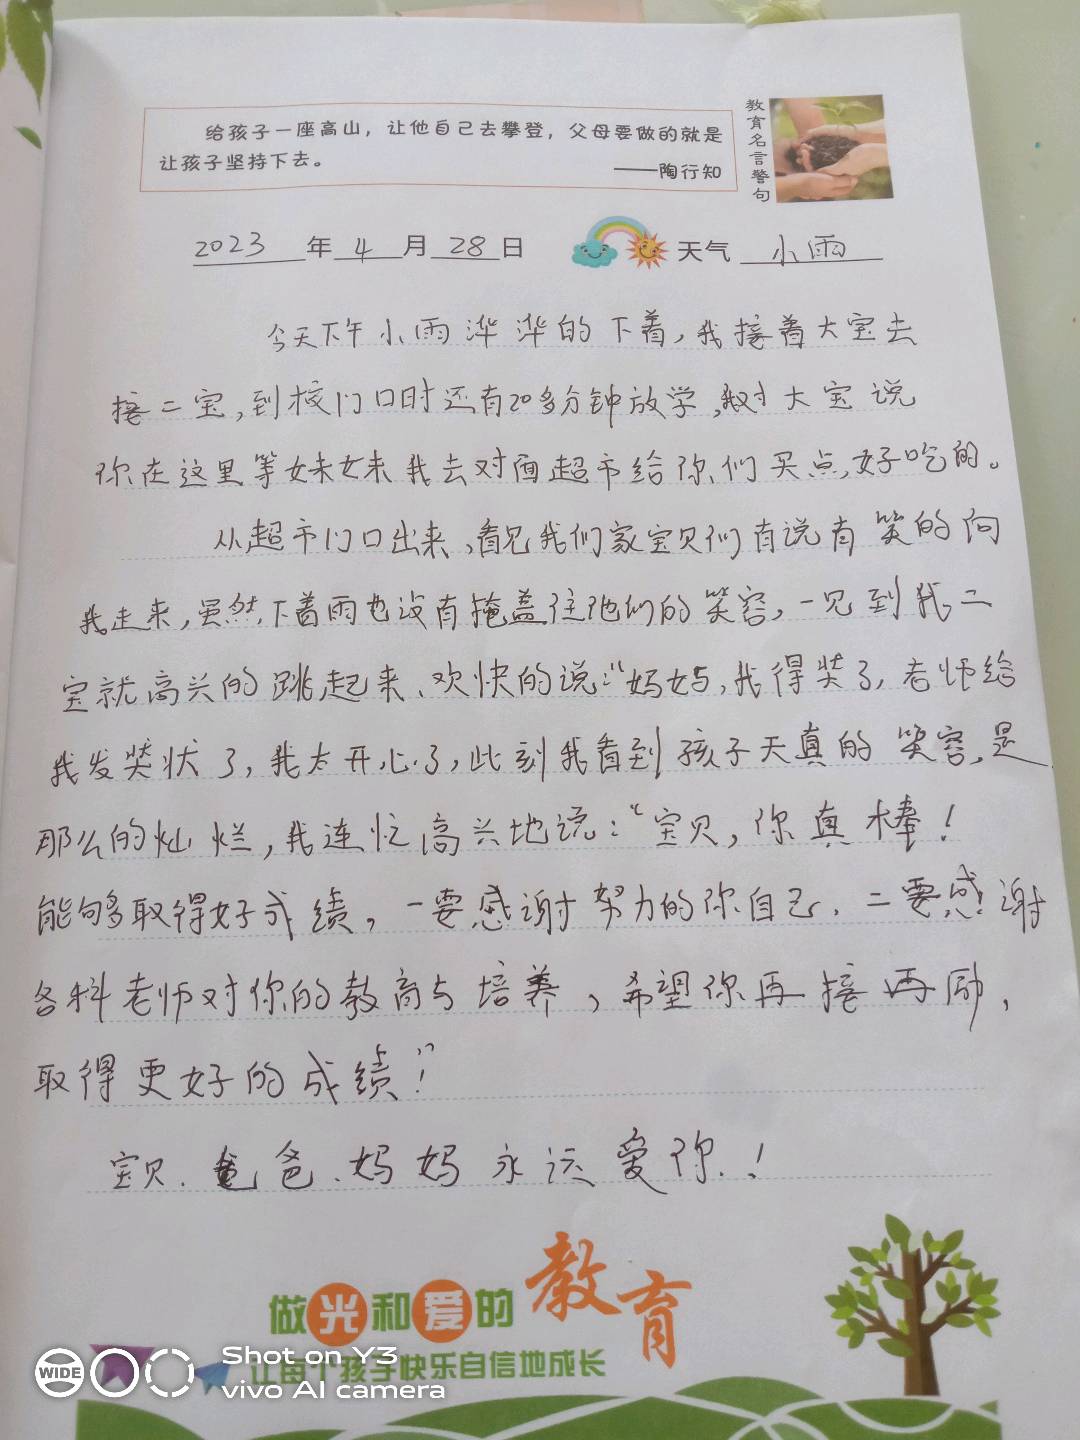 给孩子一座高山，让他自己去攀登，父母要做的就是
让孩子坚持下去。
——陶行知
教育名言警句
2023年4月28日 天气 小雨
今天下午小雨哗哗的下着，我接着大宝去
接二宝，到校门口时还有20多分钟放学，我对大宝说
你在这里等妹妹我去对面超市给你们买点好吃的。
从超市门口出来，看见我们家宝贝们有说有笑的向
我走来，虽然下着雨也没有掩盖住他们的笑容，一见到我二
宝就高兴的跳起来、欢快的说：“妈妈，我得奖了，老师给
我发奖状了，我太开心了，此刻我看到孩子天真的笑容，是
那么的灿烂，我连忙高兴地说：“宝贝，你真棒！
能够取得好成绩，一要感谢努力的你自己，二要感谢
各科老师对你的教育与培养，希望你再接再励，
取得更好的成绩！”
宝贝、爸爸、妈妈永远爱你！
做光和爱的教育
让每个孩子快乐自信地成长
WIDE
Shot on Y3
vivo AI camera